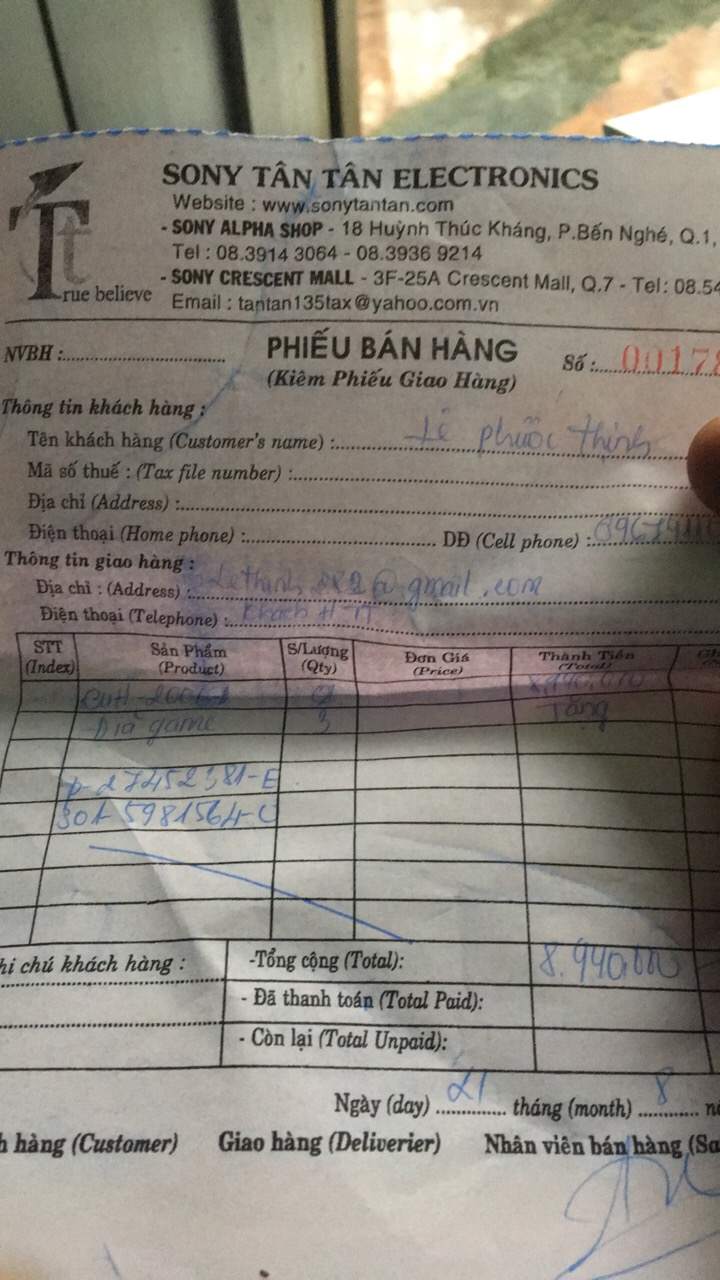 SONY TÂN TÂN ELECTRONICS
Website : www.sonytantan.com
- SONY ALPHA SHOP - 18 Huỳnh Thúc Kháng, P.Bến Nghé, Q.1,
Tel : 08.3914 3064 - 08.3936 9214
- SONY CRESCENT MALL - 3F-25A Crescent Mall, Q.7 - Tel: 08.54
True believe Email : tantan135tax@yahoo.com.vn
NVBH : PHIẾU BÁN HÀNG Số : 00178
(Kiêm Phiếu Giao Hàng)
Thông tin khách hàng :
Tên khách hàng (Customer's name) : Lê Phước Thịnh
Mã số thuế : (Tax file number) :
Địa chỉ (Address) :
Điện thoại (Home phone) : DĐ (Cell phone) :
Thông tin giao hàng :
Địa chỉ : (Address) : @gmail.com
Điện thoại (Telephone) :
STT Sản Phẩm S/Lượng Đơn Giá Thành Tiền
(Index) (Product) (Qty) (Price) (Total)
Dĩa game 3 Tặng
27452381-E
8.940.000
hi chú khách hàng : -Tổng cộng (Total): 8.940.000
- Đã thanh toán (Total Paid):
- Còn lại (Total Unpaid):
Ngày (day) 21 tháng (month) 8
h hàng (Customer) Giao hàng (Deliverier) Nhân viên bán hàng (Sa